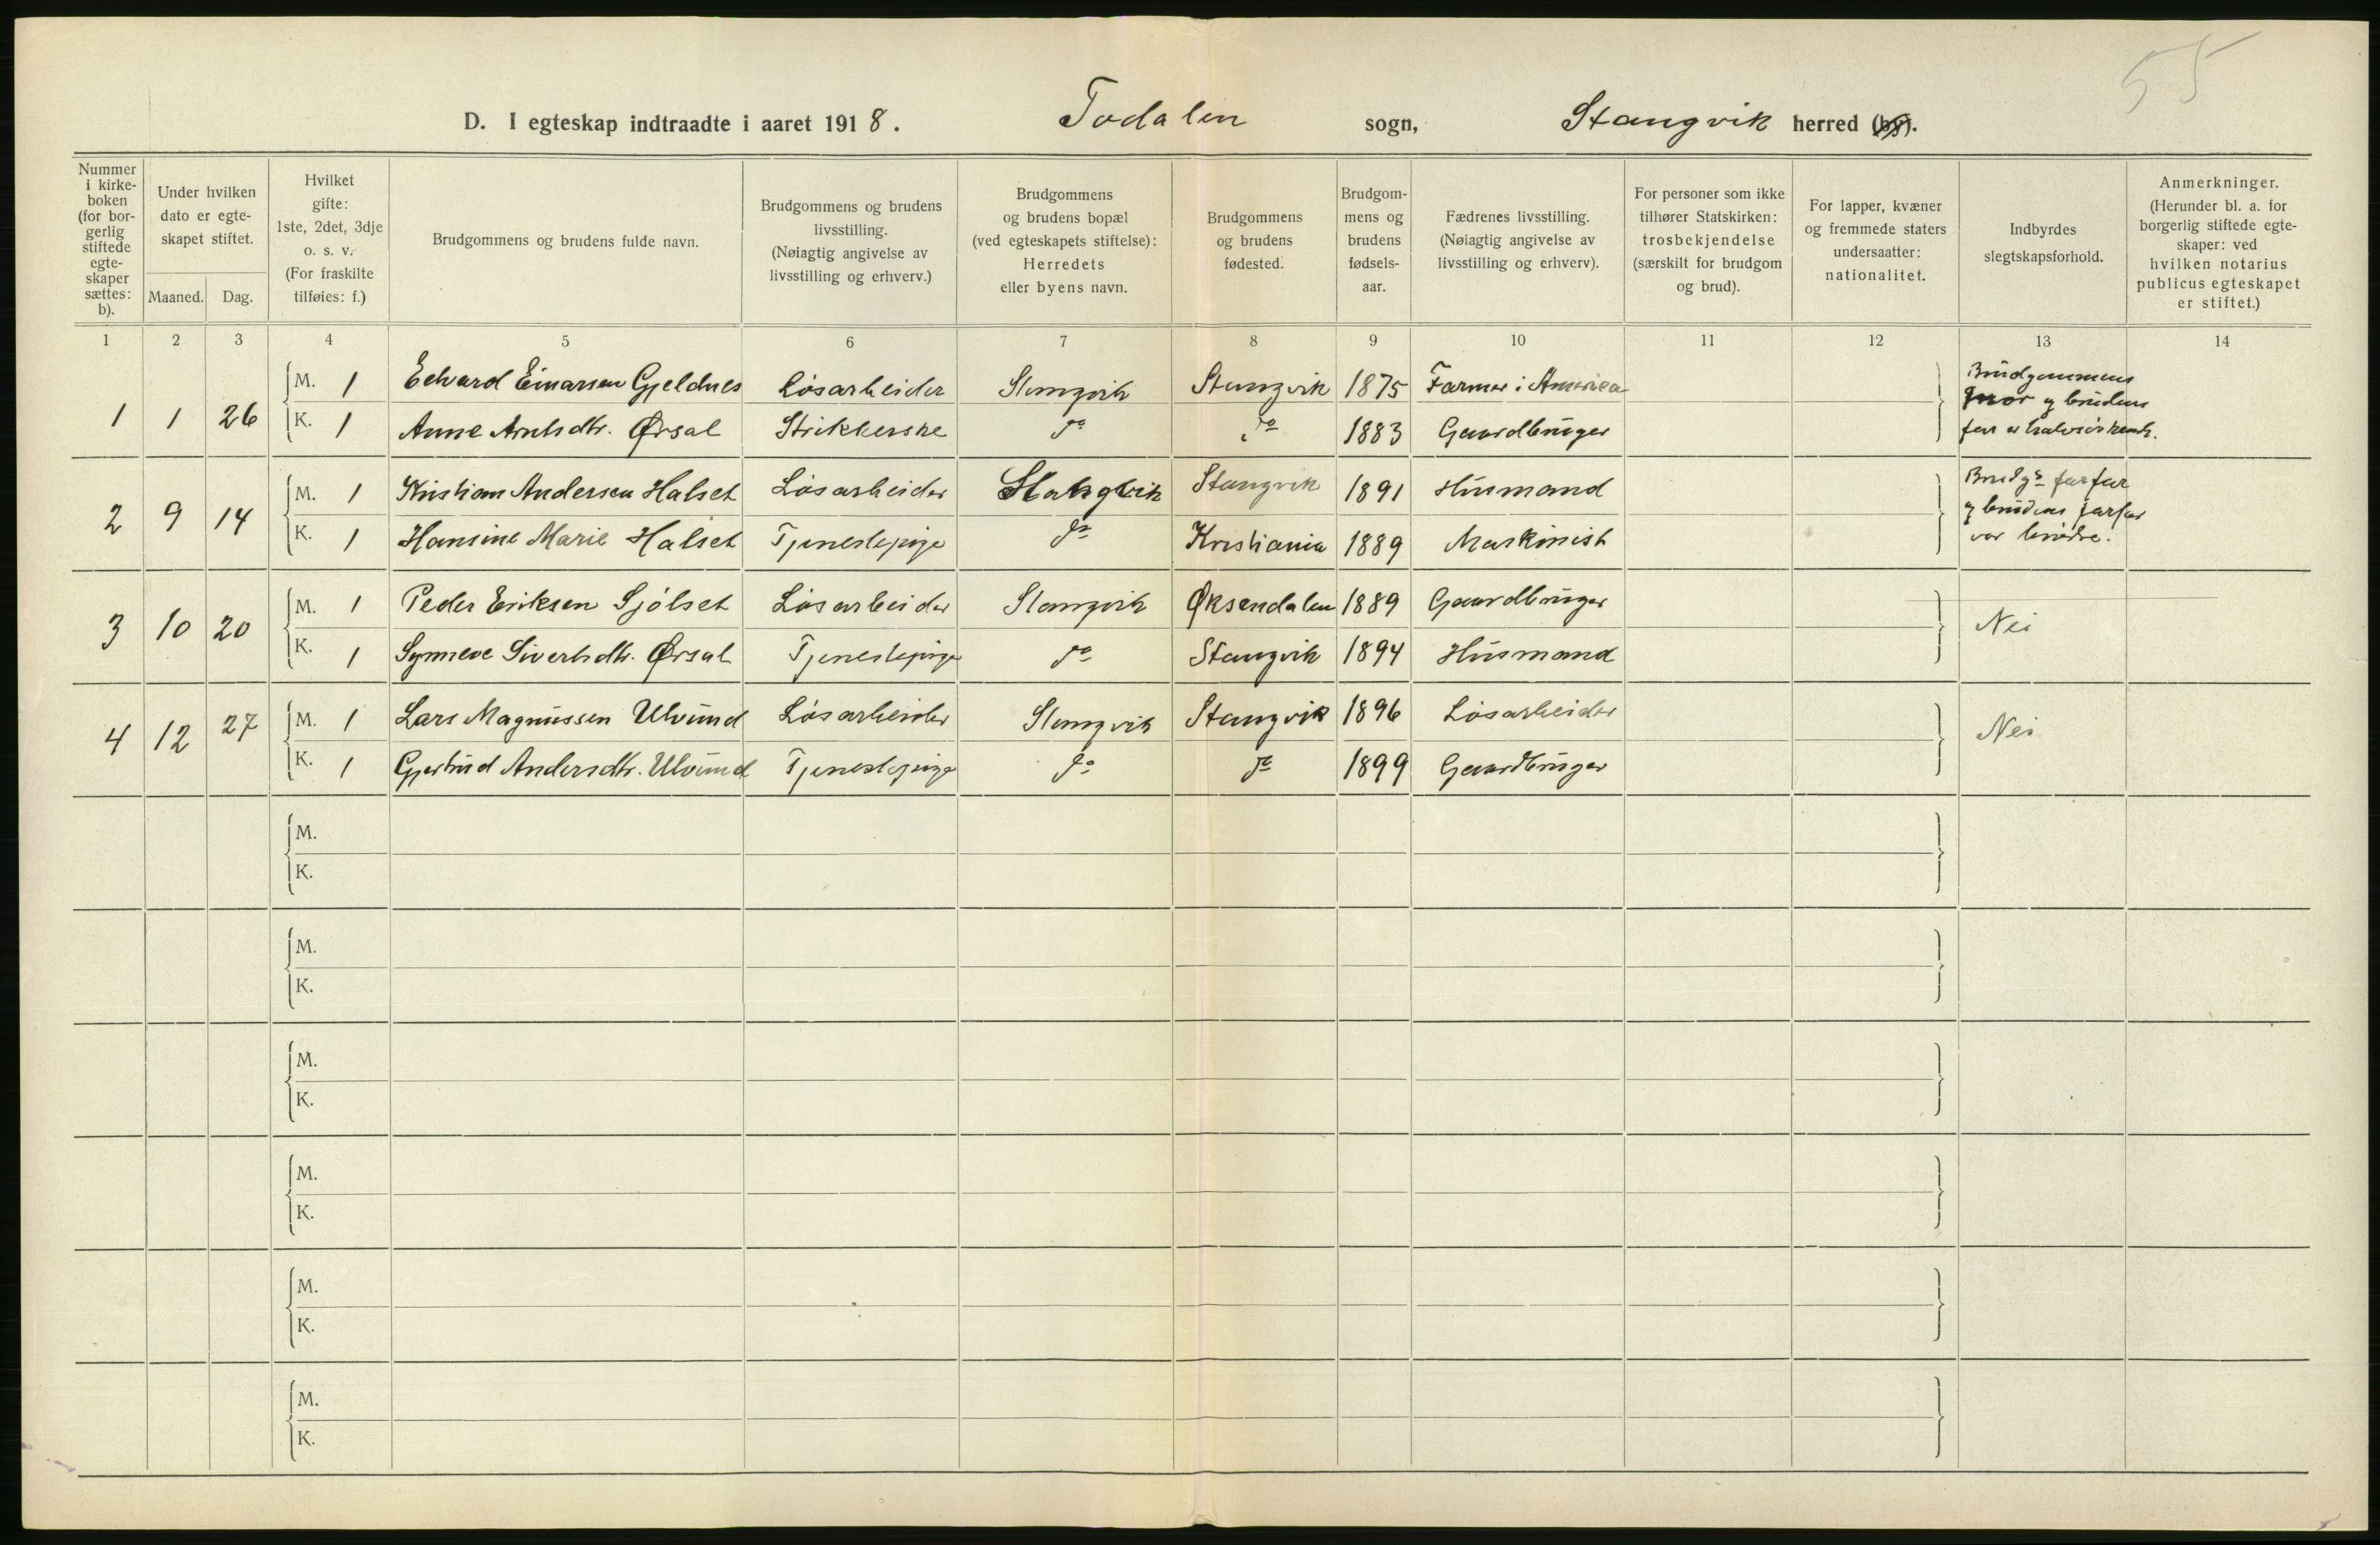 55
D. I egteskap indtraadte i aaret 1918. Todalen sogn, Stangvik herred (by).
Nummer i kirkeboken (for borgerlig stiftede egteskaper sættes: b).
Under hvilken dato er egteskapet stiftet.
Maaned. Dag.
Hvilket gifte: 1ste, 2det, 3dje o. s. v. (For fraskilte tilføies: f.)
Brudgommens og brudens fulde navn.
Brudgommens og brudens livsstilling. (Nøiagtig angivelse av livsstilling og erhverv.)
Brudgommens og brudens bopæl (ved egteskapets stiftelse): Herredets eller byens navn.
Brudgommens og brudens fødested.
Brudgommens og brudens fødselsaar.
Fædrenes livsstilling. (Nøiagtig angivelse av livsstilling og erhverv).
For personer som ikke tilhører Statskirken: trosbekjendelse (særskilt for brudgom og brud).
For lapper, kvæner og fremmede staters undersaatter: nationalitet.
Indbyrdes slegtskapsforhold.
Anmerkninger. (Herunder bl. a. for borgerlig stiftede egteskaper: ved hvilken notarius publicus egteskapet er stiftet.)
1 2 3 4 5 6 7 8 9 10 11 12 13 14
1 1 26
M. 1 Edvard Einarsen Gjeldnes Løsarbeider Stangvik Stangvik 1875 Farmer i America
K. 1 Anne Arntsdtr. Ørsal Strikkerske do do 1883 Gaardbruger
Brudgommens
mor og brudens
far er halvsøskenb.
2 9 14
M. 1 Kristian Andersen Halset Løsarbeider Stangvik Stangvik 1891 Husmand
K. 1 Hansine Marie Halset Tjenestepige do Kristiania 1889 Maskinist
Brudgs farfar
og brudens farfar
var brødre.
3 10 20
M. 1 Peder Eriksen Sjølset Løsarbeider Stangvik Øksendalen 1889 Gaardbruger
K. 1 Synneve Sivertsdtr. Ørsal Tjenestepige do Stangvik 1894 Husmand
Nei
4 12 27
M. 1 Lars Magnussen Ulvund Løsarbeider Stangvik Stangvik 1896 Løsarbeider
K. 1 Gjertrud Andersdtr. Ulvund Tjenestepige do do 1899 Gaardbruger
Nei
M.
K.
M.
K.
M.
K.
M.
K.
M.
K.
M.
K.